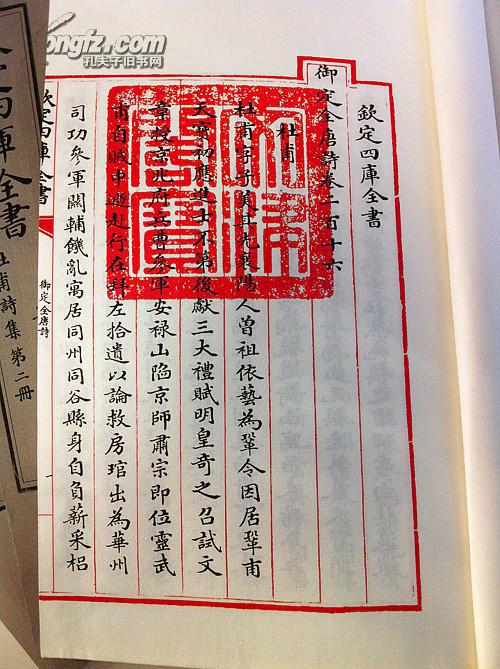 欽定四庫全書
御定全唐詩卷二百十六
杜甫
杜甫字子美其先襄陽人曾祖依藝為鞏令因居鞏甫
天寶初應進士不第後獻三大禮賦明皇奇之召試文
章授京兆府兵曹參軍安禄山陷京師肅宗即位靈武
甫自賊中遯赴行在拜左拾遺以論救房琯出為華州
司功參軍關輔饑亂寓居同州同谷縣身自負薪采梠
欽定四庫全書
御定全唐詩
一
四庫全書
甫詩集 第二冊
ongfz.com
孔夫子旧书网